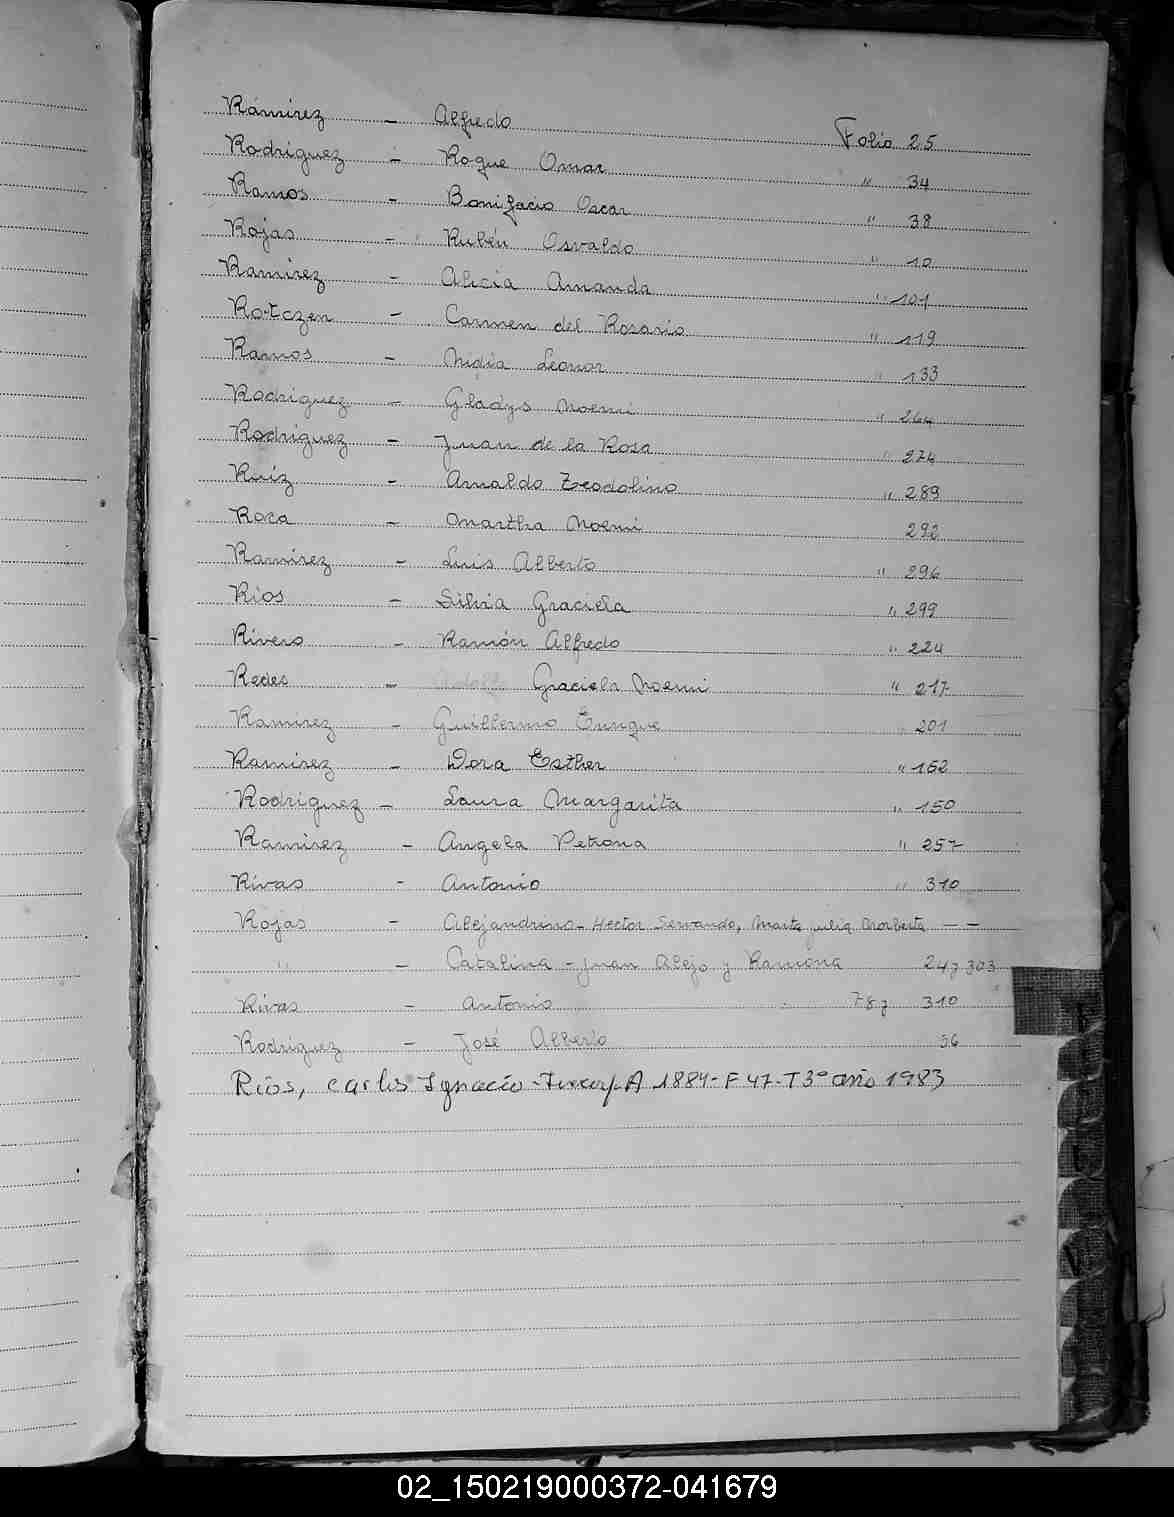 Ramírez - Alfredo Folio 25
Rodriguez - Roque Omar " 34
Ramos - Bonifacio Oscar " 38
Rojas - Rubén Osvaldo " 10
Ramirez - Alicia Amanda " 101
Rotczen - Carmen del Rosario " 119
Ramos - Nidia Leonor " 133
Rodriguez - Gladys Noemi " 264
Rodriguez - Juan de la Rosa " 274
Ruiz - Arnaldo Teodolino " 289
Roca - Martha Noemi 292
Ramirez - Luis Alberto " 296
Rios - Silvia Graciela " 299
Rivero - Ramón Alfredo " 224
Redes - Graciela Noemi " 217
Ramirez - Guillermo Enrique 201
Ramirez - Dora Esther " 152
Rodriguez - Laura Margarita " 150
Ramirez - Angela Petrona " 257
Rivas - Antonio " 310
Rojas - Alejandrino - Hector Servando, Marta julia Norberta - -
" - Catalina - Juan Alejo y Ramona 247 303
Rivas - Antonio 78 y 310
Rodriguez - José Alberto 56
Ríos, Carlos Ignacio - A 1884 - F 47 - T 3º año 1983
02_150219000372-041679